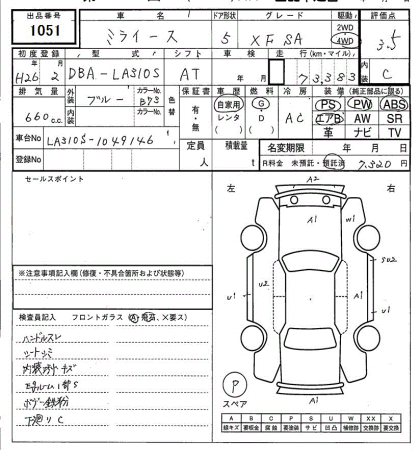 出品番号 車名 ドア形状 グレード 駆動 評価点
1051 ミライース 5 XF SA 2WD 4WD 3.5
初度登録 型式 シフト 車検 走行(km・マイル) 内装
H26年2月 DBA-LA310S AT 年月 73383 C
排気量 外装 カラーNo. 色替 保証書 車歴 燃料 冷房 装備(純正部品に限る)
660c.c. ブルー B73 有・無 自家用 G AC PS PW ABS
内装 カラーNo. レンタ D エアB AW SR
( ) ( ) 革 ナビ TV
車台No LA310S-1049146 定員 積載量 名変期限 年 月 日
登録No 人 t R料金 未預託・預託済 7,520円
セールスポイント
左 右
A2
A1 W1
U2 SU2
U1 U1
A1
A1
※注意事項記入欄(修復・不具合箇所および状態等)
検査員記入 フロントガラス(A)飛石、X要ス)
ハンドルスレ
シートシミ
内装キズ
ボデー鉄粉
下廻りC
P
スペア
A B C P S U W X XX
線キズ 要板金 腐蝕 要塗装 サビ 凹凸 補修跡 交換跡 要交換